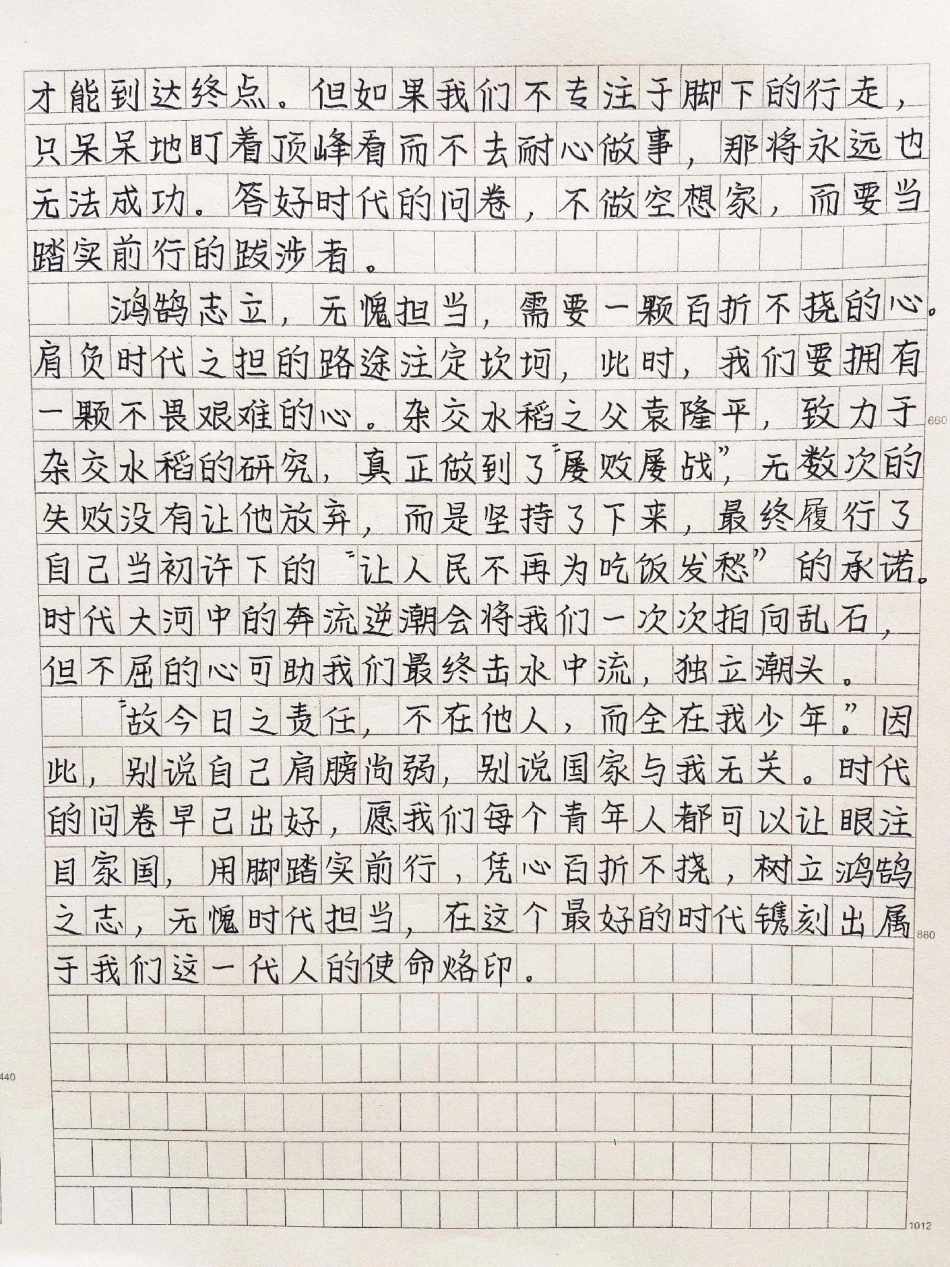 才能到达终点。但如果我们不专注于脚下的行走，
只呆呆地盯着顶峰看而不去耐心做事，那将永远也
无法成功。答好时代的问卷，不做空想家，而要当
踏实前行的跋涉者。
鸿鹄志立，无愧担当，需要一颗百折不挠的心。
肩负时代之担的路途注定坎坷，此时，我们要拥有
一颗不畏艰难的心。杂交水稻之父袁隆平，致力于
660
杂交水稻的研究，真正做到了“屡败屡战”，无数次的
失败没有让他放弃，而是坚持了下来，最终履行了
自己当初许下的“让人民不再为吃饭发愁”的承诺。
时代大河中的奔流逆潮会将我们一次次拍向乱石，
但不屈的心可助我们最终击水中流，独立潮头。
“故今日之责任，不在他人，而全在我少年”。因
此，别说自己肩膀尚弱，别说国家与我无关。时代
的问卷早已出好，愿我们每个青年人都可以让眼注
目家国，用脚踏实前行，凭心百折不挠，树立鸿鹄
之志，无愧时代担当，在这个最好的时代镌刻出属
880
于我们这一代人的使命烙印。
440
1012